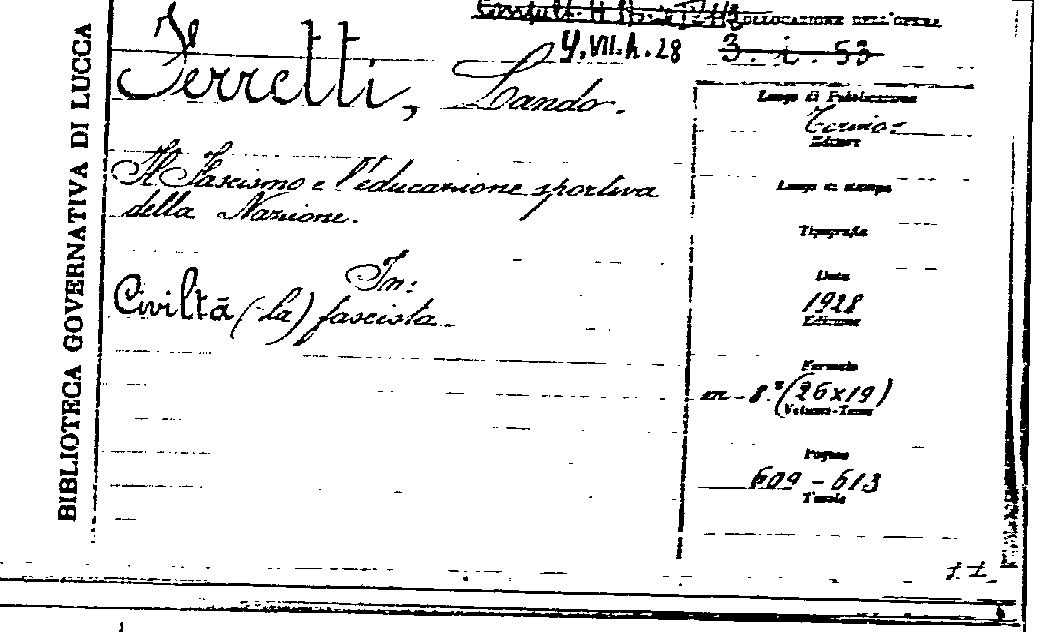 BIBLIOTECA GOVERNATIVA DI LUCCA
COLLOCAZIONE DELL'OPERA
Y.VII.A.28 3.i.53
Ferretti, Lando.
Il Fascismo e l'educazione sportiva
della Nazione.
In:
Civiltà (la) fascista.
Luogo di Pubblicazione
Editore
Luogo di stampa
Tipografia
Data
1928
Edizione
Formato
in-8.° (26x19)
Volume-Tomo
Pagine
609-613
Tavole